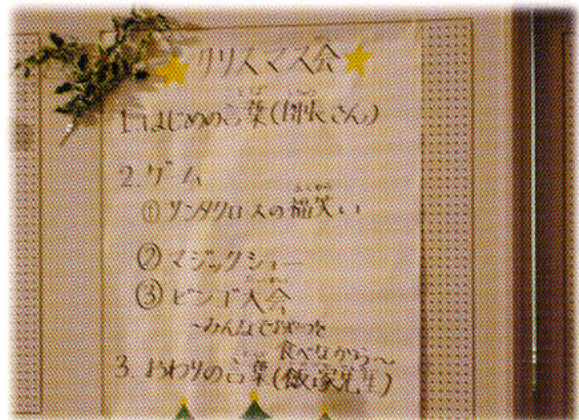 クリスマス会
1.はじめの言葉(さん)
2.ゲーム
①サンタクロースの福笑い
②マジックショー
③ビンゴ大会
~みんなでおやつを
食べながら~
3.おわりの言葉(飯家先生)